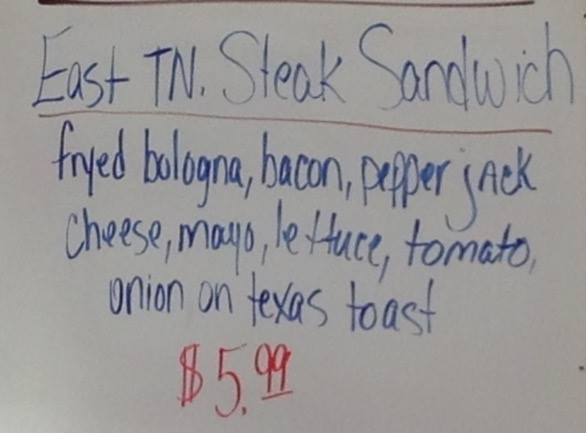 East TN. Steak Sandwich
fryed bologna, bacon, pepper jack
cheese, mayo, lettuce, tomato,
onion on texas toast
$5.99